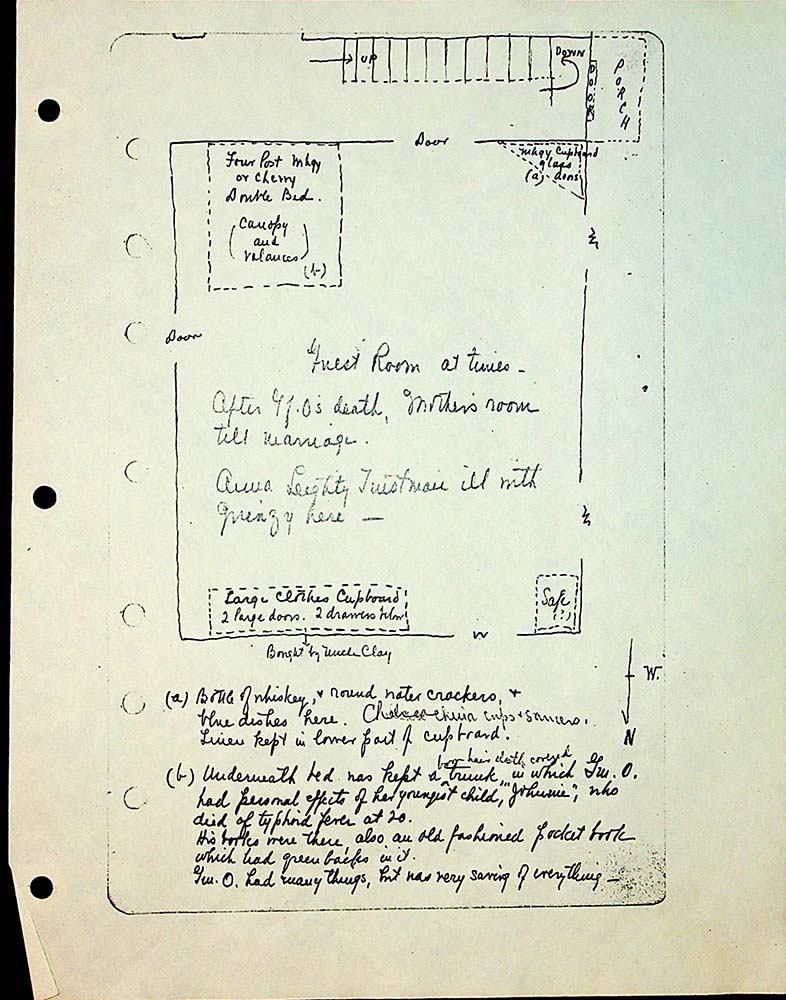 UP
DOWN
DOOR
PORCH
Door
Four Post Mhgy
or Cherry
Double Bed.
(Canopy
and
Valances)
(b)
Mhgy Cupboard
glass
(a) doors
Door
Guest Room at times -
After Gf. O's death, Mother's room
till marriage.
Anna Leighty Trostman ill with
quinzy here —
Large Clothes Cupboard
2 large doors. 2 drawers below
Safe
(?)
W
Bought by Uncle Clay
W.
N
(a) Bottle of whiskey, & round water crackers, &
blue dishes here. Chelsea china cups & saucers.
Linen kept in lower part of cupboard.
(b) Underneath bed was kept a trunk, in which Gm. O.
cloth covered
had personal effects of her youngest child, "Johnnie", who
died of typhoid fever at 20.
His books were there, also an old fashioned pocket book
which had greenbacks in it.
Gm. O. had many things, but was very saving of everything —